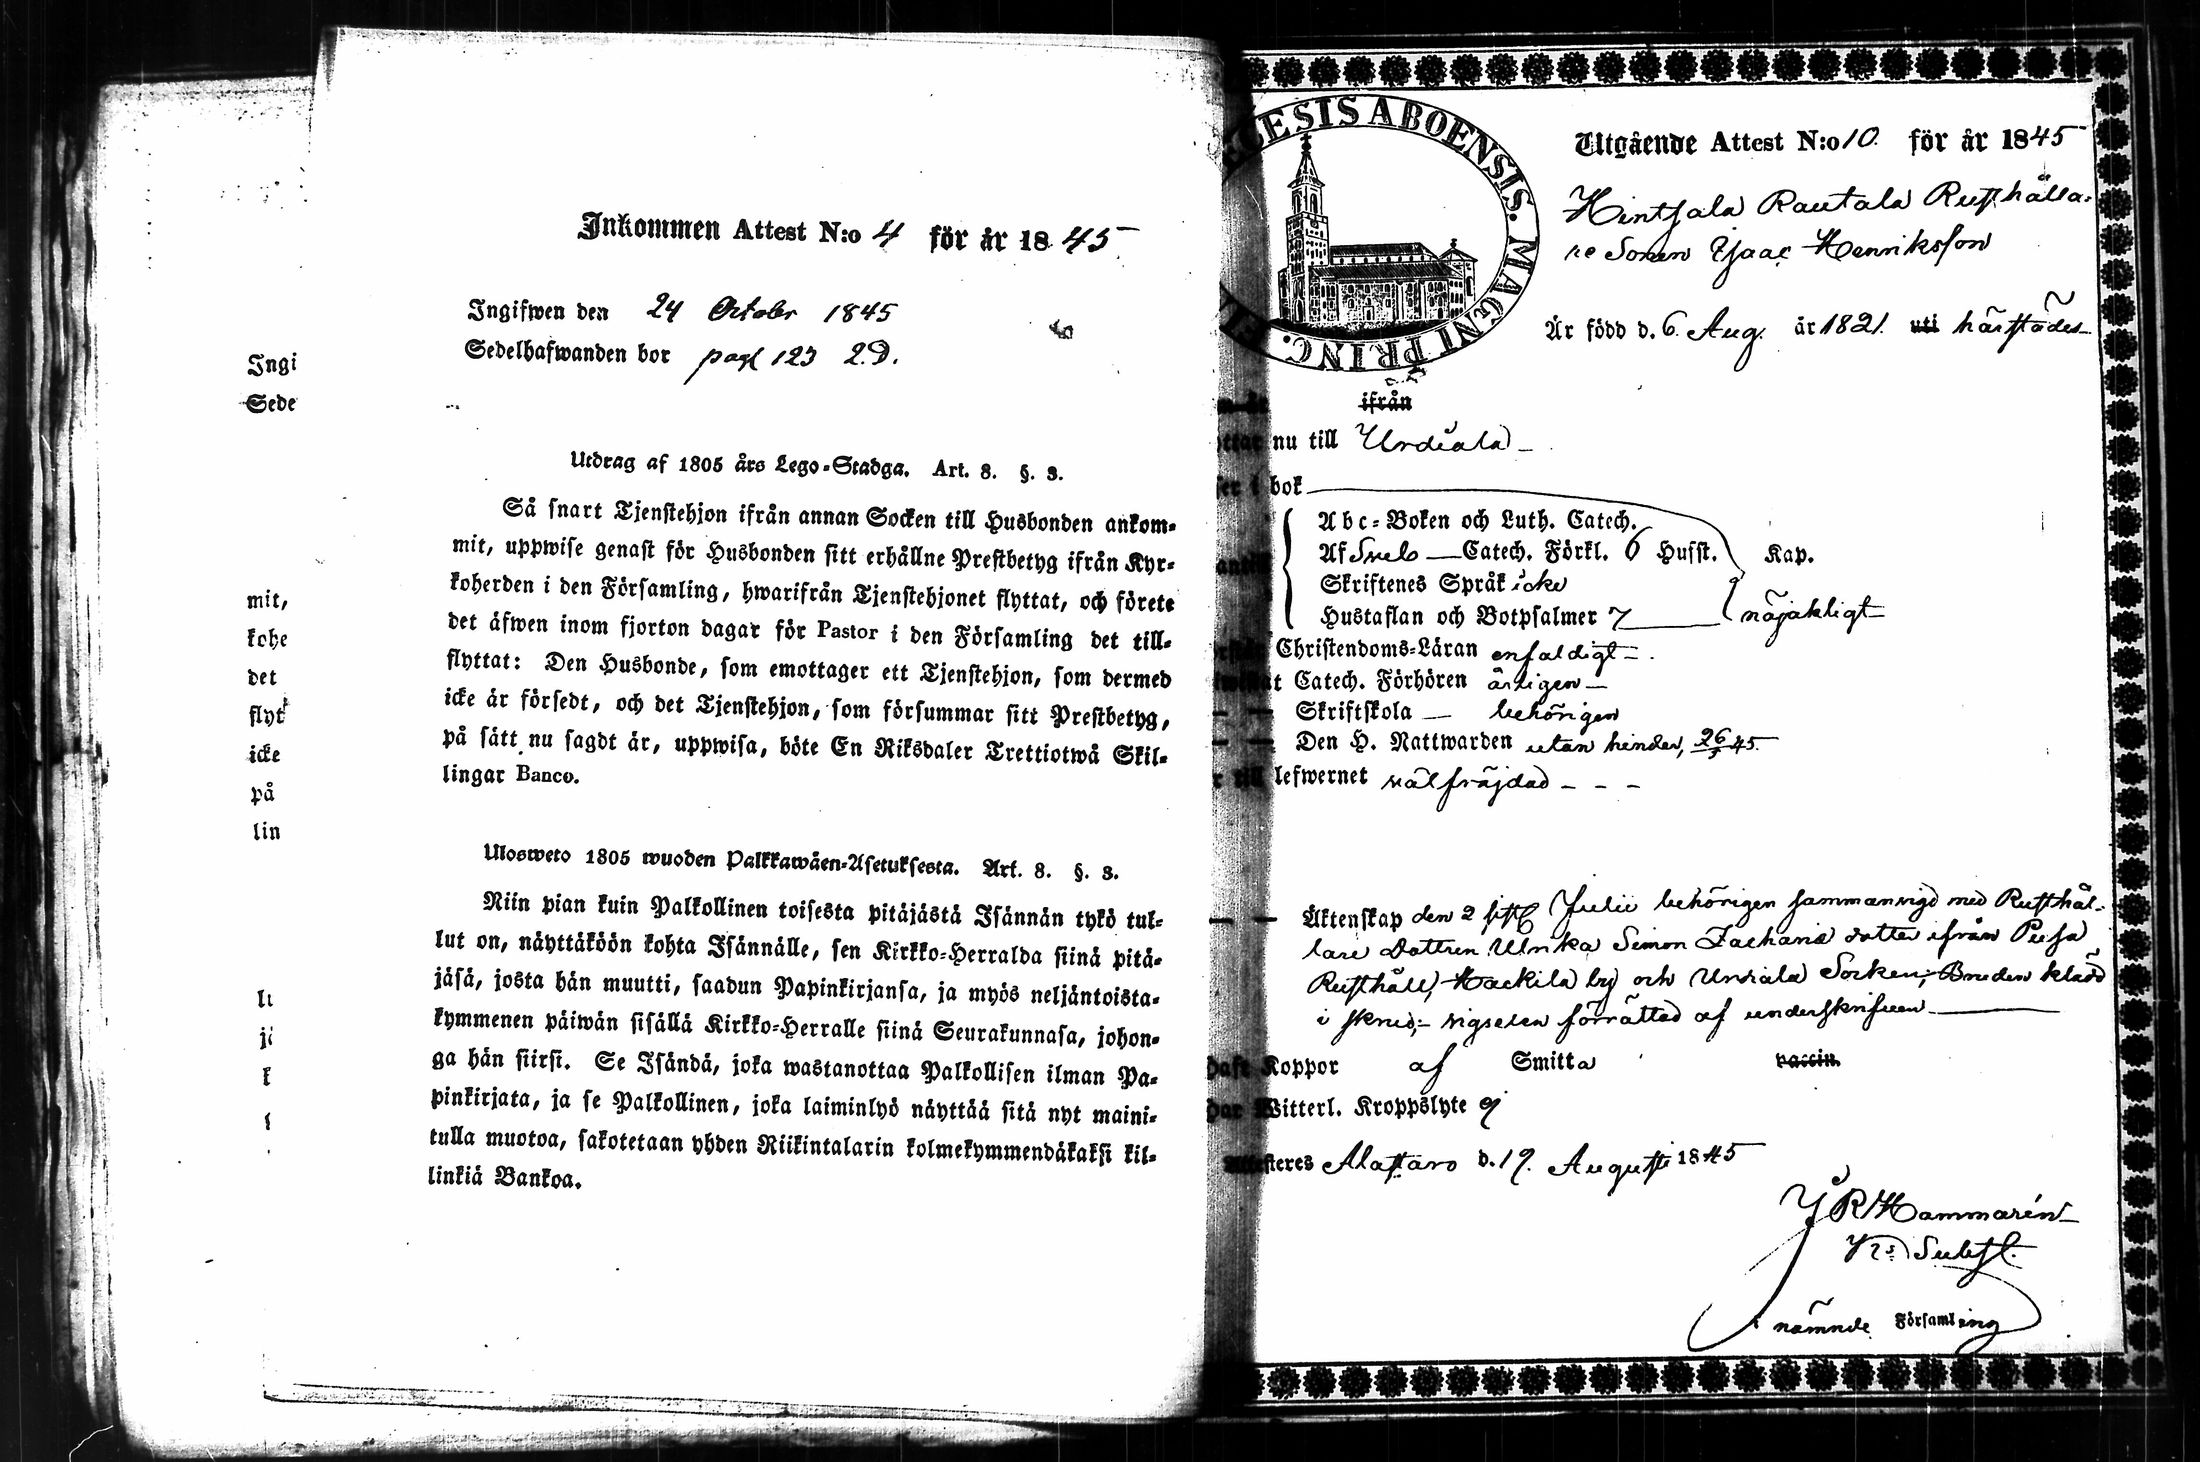 Inkommen Attest N:o 4 för år 1845
Ingifwen den 24 October 1845
Sedelhafwanden bor pag 123 2.D.
Utdrag af 1805 års Lego-Stadga. Art. 8. §. 3.
Så snart Tjenstehjon ifrån annan Socken till Husbonden ankom-
mit, uppwise genast för Husbonden sitt erhållne Prestbetyg ifrån Kyr-
koherden i den Församling, hwarifrån Tjenstehjonet flyttat, och förete
det äfwen inom fjorton dagar för Pastor i den Församling det till-
flyttat: Den Husbonde, som emottager ett Tjenstehjon, som dermed
icke är försedt, och det Tjenstehjon, som försummar sitt Prestbetyg,
på sätt nu sagdt är, uppwisa, böte En Riksdaler Trettiotwå Skil-
lingar Banco.
Ulosweto 1805 wuoden Palkkawäen-Asetuksesta. Art. 8. §. 3.
Niin pian kuin Palkollinen toisesta pitäjästä Isännän tykö tul-
lut on, näyttäköön kohta Isännälle, sen Kirkko-Herralda siinä pitä-
jäsä, josta hän muutti, saadun Papinkirjansa, ja myös neljäntoista-
kymmenen päiwän sisällä Kirkko-Herralle siinä Seurakunnasa, johon-
ga hän siirsi. Se Isändä, joka wastanottaa Palkollisen ilman Pa-
pinkirjata, ja se Palkollinen, joka laiminlyö näyttää sitä nyt maini-
tulla muotoa, sakotetaan yhden Riikintalarin kolmekymmendäkaksi kil-
linkiä Bankoa.
Ingi
Sede
mit,
kohe
det
flyt
icke
på
lin
ESIS ABOENSIS. MAGNI PRINC.
Utgående Attest N:o 10. för år 1845
Hintsala Rautala Rusthålla-
re Sonen Isaac Henriksson
Är född d. 6. Aug. år 1821. uti härstädes
ifrån
nu till Urdiala
bok
Abc-Boken och Luth. Catech.
Af Sveb Catech. Förkl. 6 Husst. Kap.
Skriftenes Språk icke
Hustaflan och Botpsalmer 7 nöjaktigt
Christendoms-Läran enfaldigt
Catech. Förhören ärligen
Skriftskola behörigen
Den H. Nattwarden utan hinder, 26/ 45.
till lefwernet välfräjdad
Äktenskap den 2 sistl Julii behörigen sammanvigd med Rusthål-
lare Dottren Ulrika Simon Zacharie dotter ifrån Pusa
Rusthåll, Hackila by och Urdiala Socken; Bruden klädd
i skrud; vigselen förrättad af underskrifven
Koppor af Smitta vaccin.
Witterl. Kroppslyte ej
Attesteres Alastaro d. 19. Augusti 1845
J R Hammarén
Subst.
i nämnde Församling